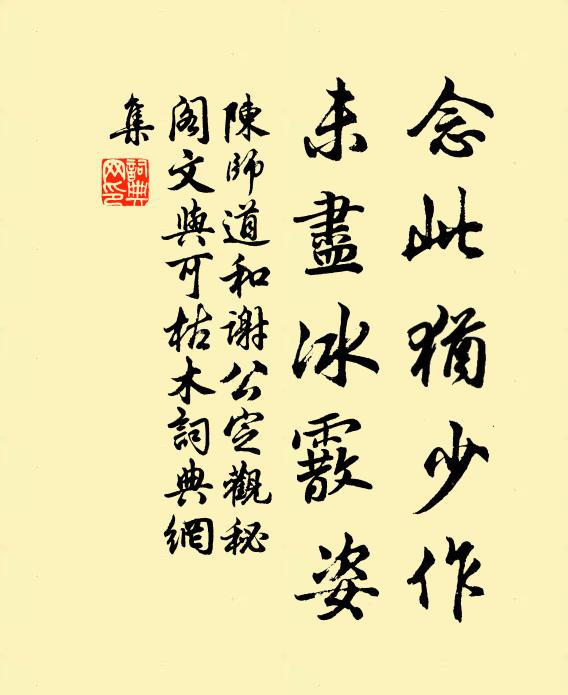 念此猶少作
未盡冰霰姿
陳師道和謝公定觀秘
閣文與可枯木詞典網
集
詞典網印